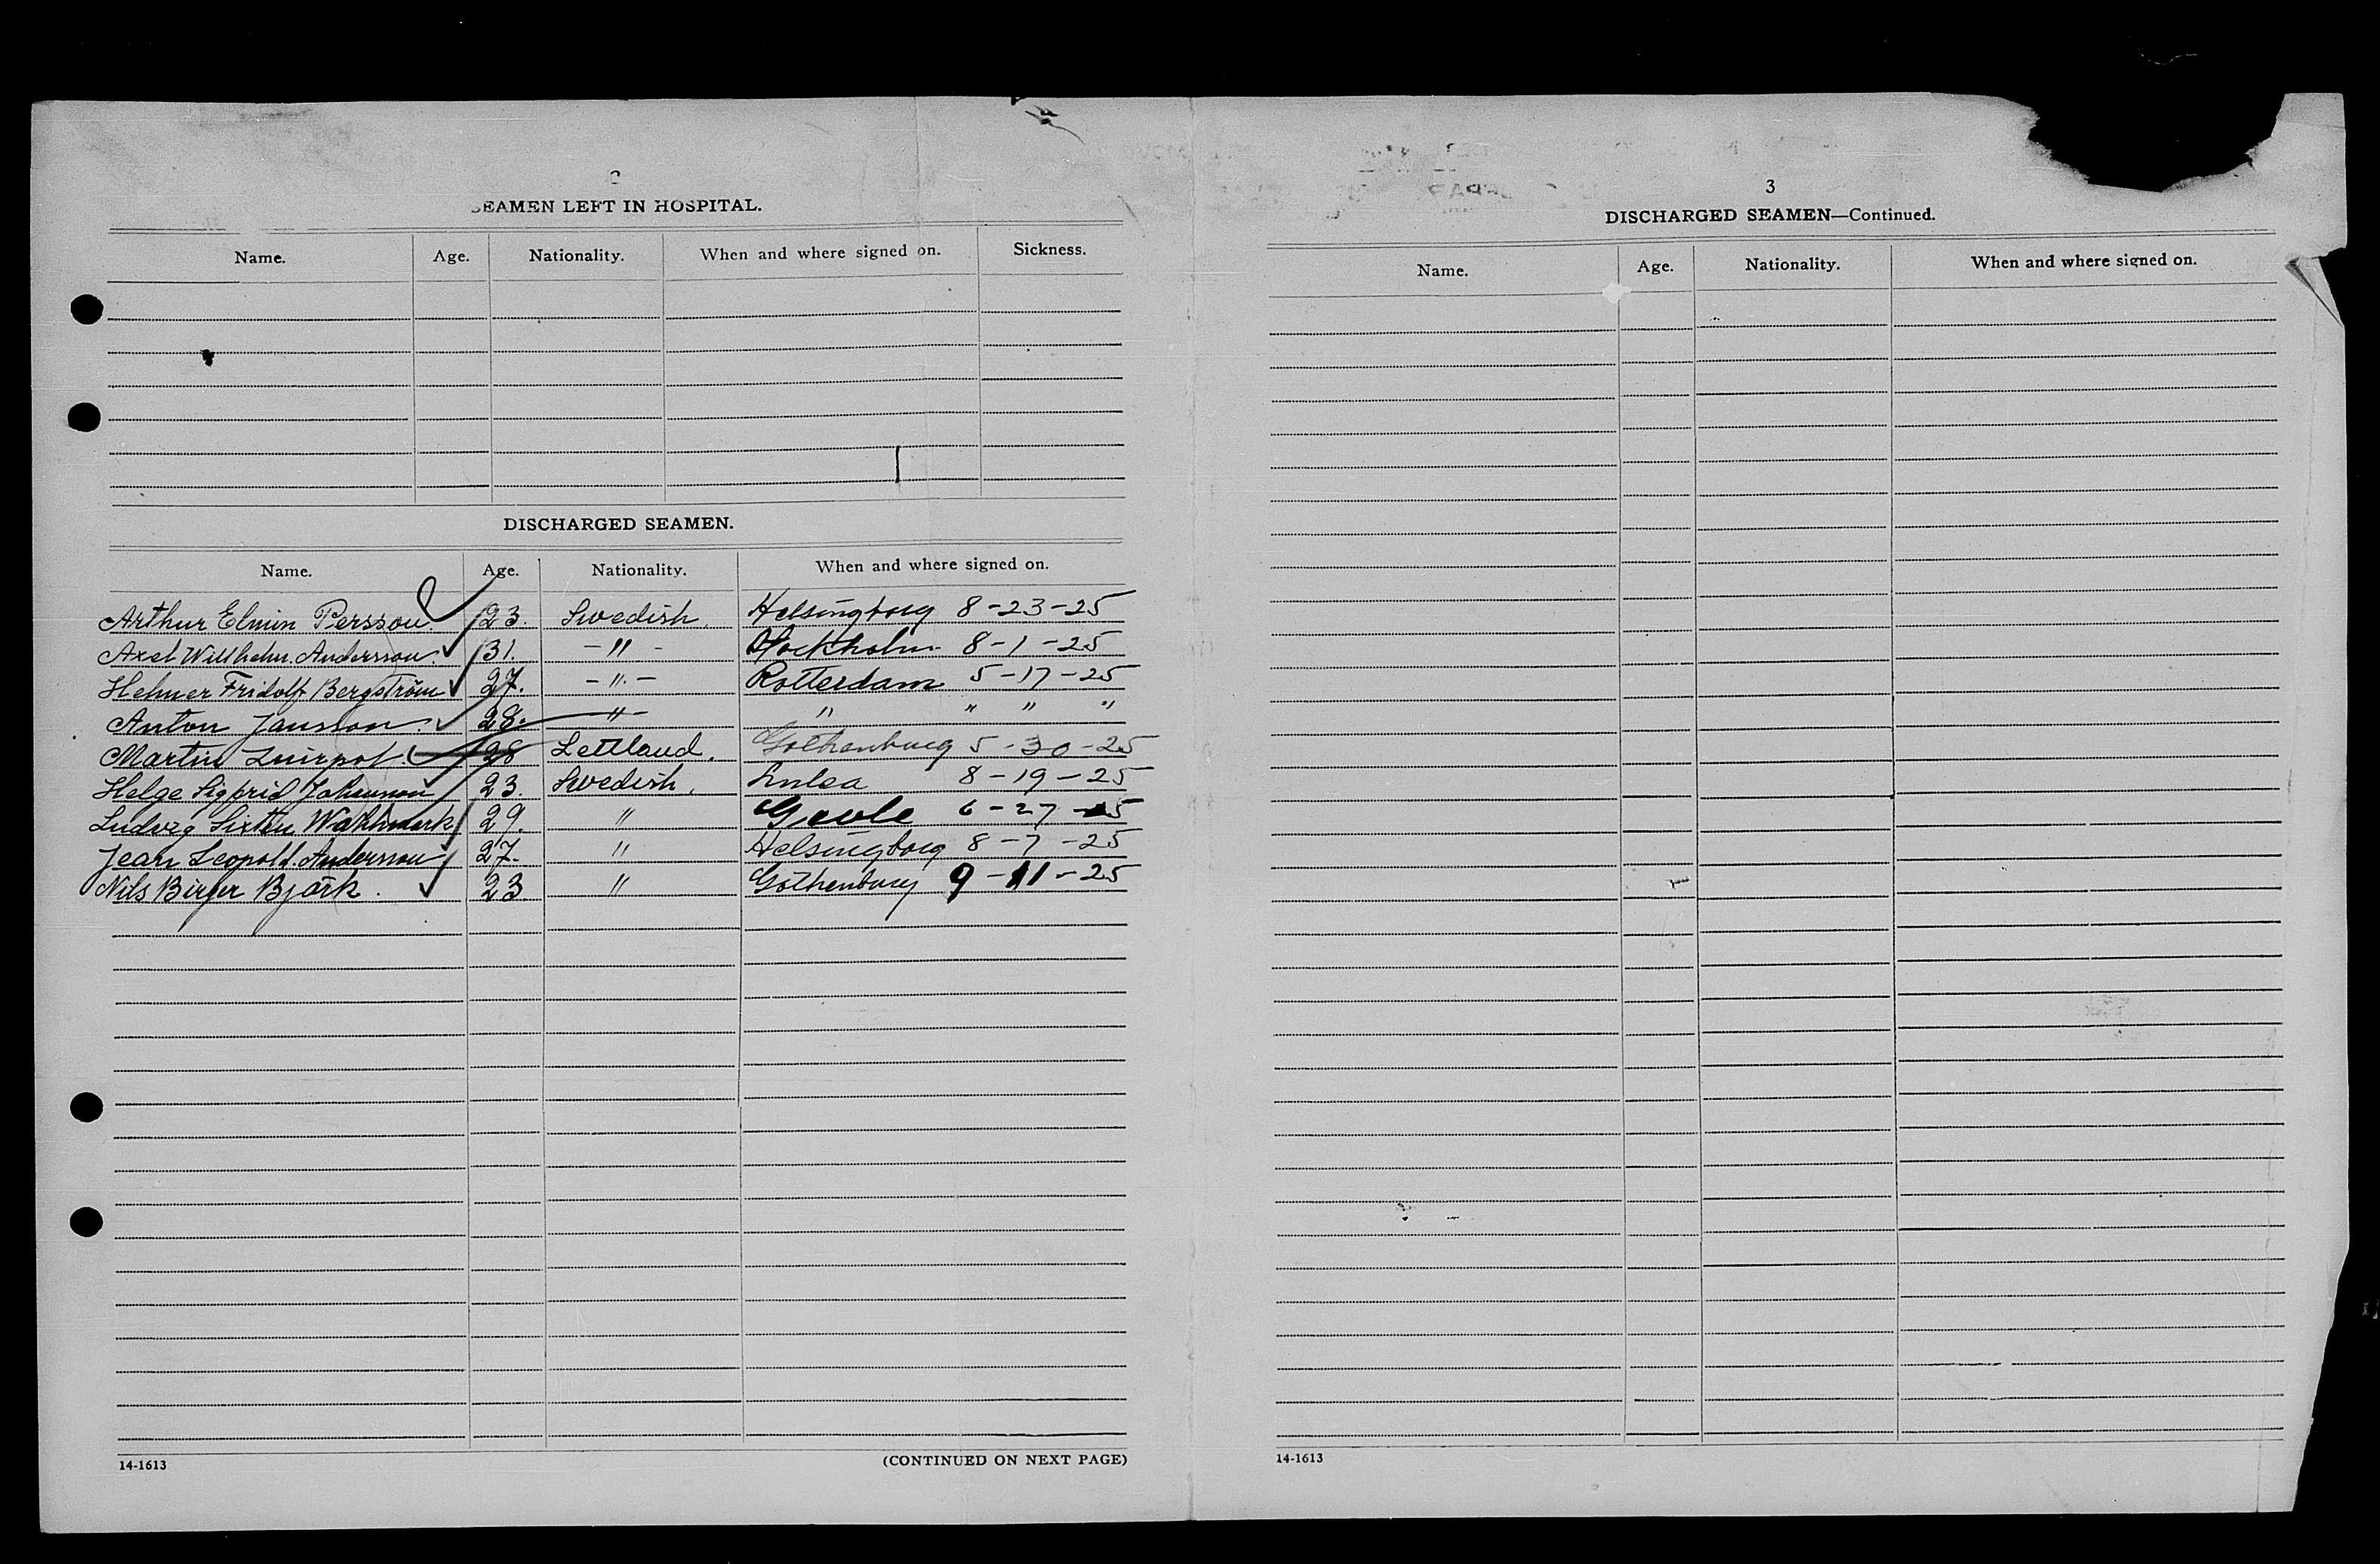 SEAMEN LEFT IN HOSPITAL.
Name. Age. Nationality. When and where signed on. Sickness.
DISCHARGED SEAMEN.
Name. Age. Nationality. When and where signed on.
Arthur Elmin Persson. 23. Swedish. Helsingborg 8-23-25
Axel Willhelm Andersson. 31. -"- Stockholm 8-1-25
Helmer Fridolf Bergström 27. -"- Rotterdam 5-17-25
Anton Jansson. 28. -"- " " " "
Martin 28 Lettland. Gothenburg 5-30-25
Helge Sigfrid Johannson 23. Swedish. Lulea 8-19-25
Ludvig Sixten Wahlmark 29. " Gevle 6-27-25
Jean Leopold Andersson 27. " Helsingborg 8-7-25
Nils Birger Björk. 23. " Gothenburg 9-11-25
14-1613 (CONTINUED ON NEXT PAGE)
3
DISCHARGED SEAMEN—Continued.
Name. Age. Nationality. When and where signed on.
14-1613